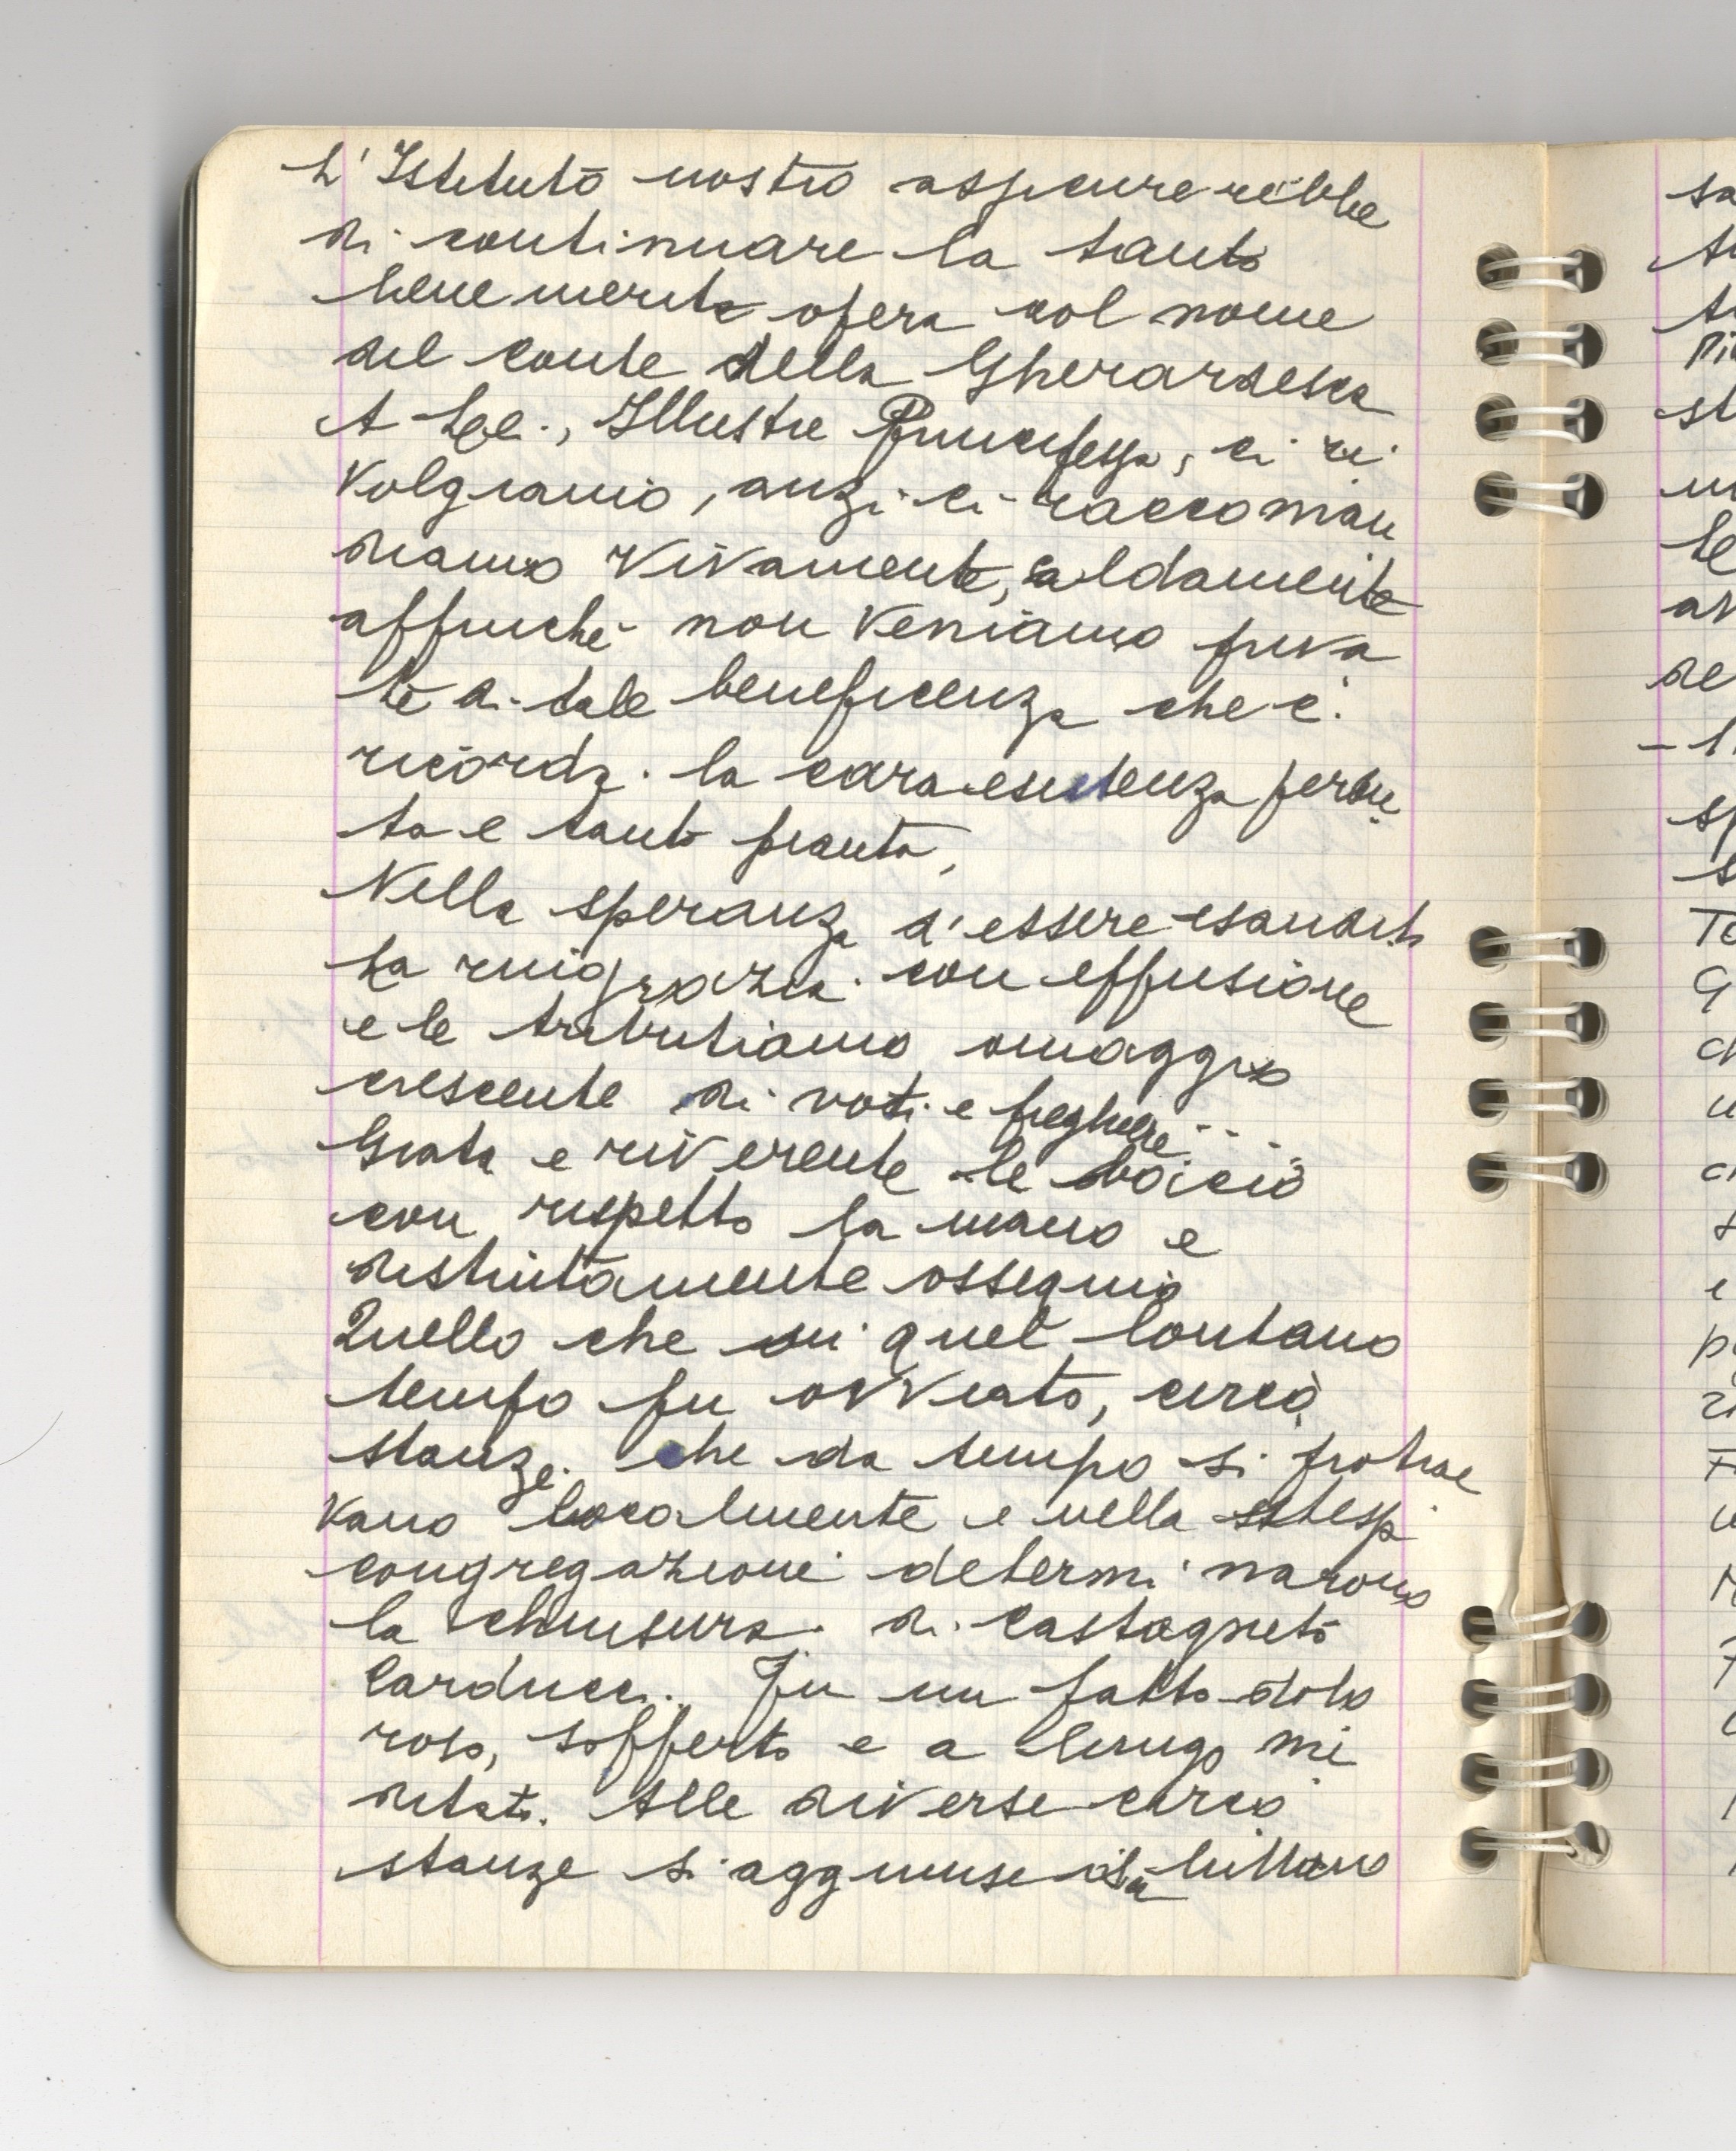 L'Istituto nostro assicurerebbe
di continuare la tanto
benemerita opera col nome
del conte della Gherardesca
A Lei, Illustre Principessa, ci ri
volgiamo, anzi ci raccoman
diamo vivamente, caldamente
affinché non veniamo priva
te di tale beneficenza che ci
ricorda la cara esistenza perdu
ta e tanto pianta,
Nella speranza d'essere esaudite
La ringrazia con effusione
e le tributiamo omaggio
crescente di voti e preghiere....
Grata e riverente le bacio
con rispetto la mano e
distintamente ossequio
Quello che in quel lontano
tempo fu ovviato, circo
stanze che da tempo si protrae
vano localmente e nella stessa
congregazione determinarono
la chiusura di Castagneto
Carducci. Fu un fatto dolo
roso, sofferto e a lungo mi
ditato. Alle diverse circo
stanze si aggiunse
sa
st
Te
G
ch
e